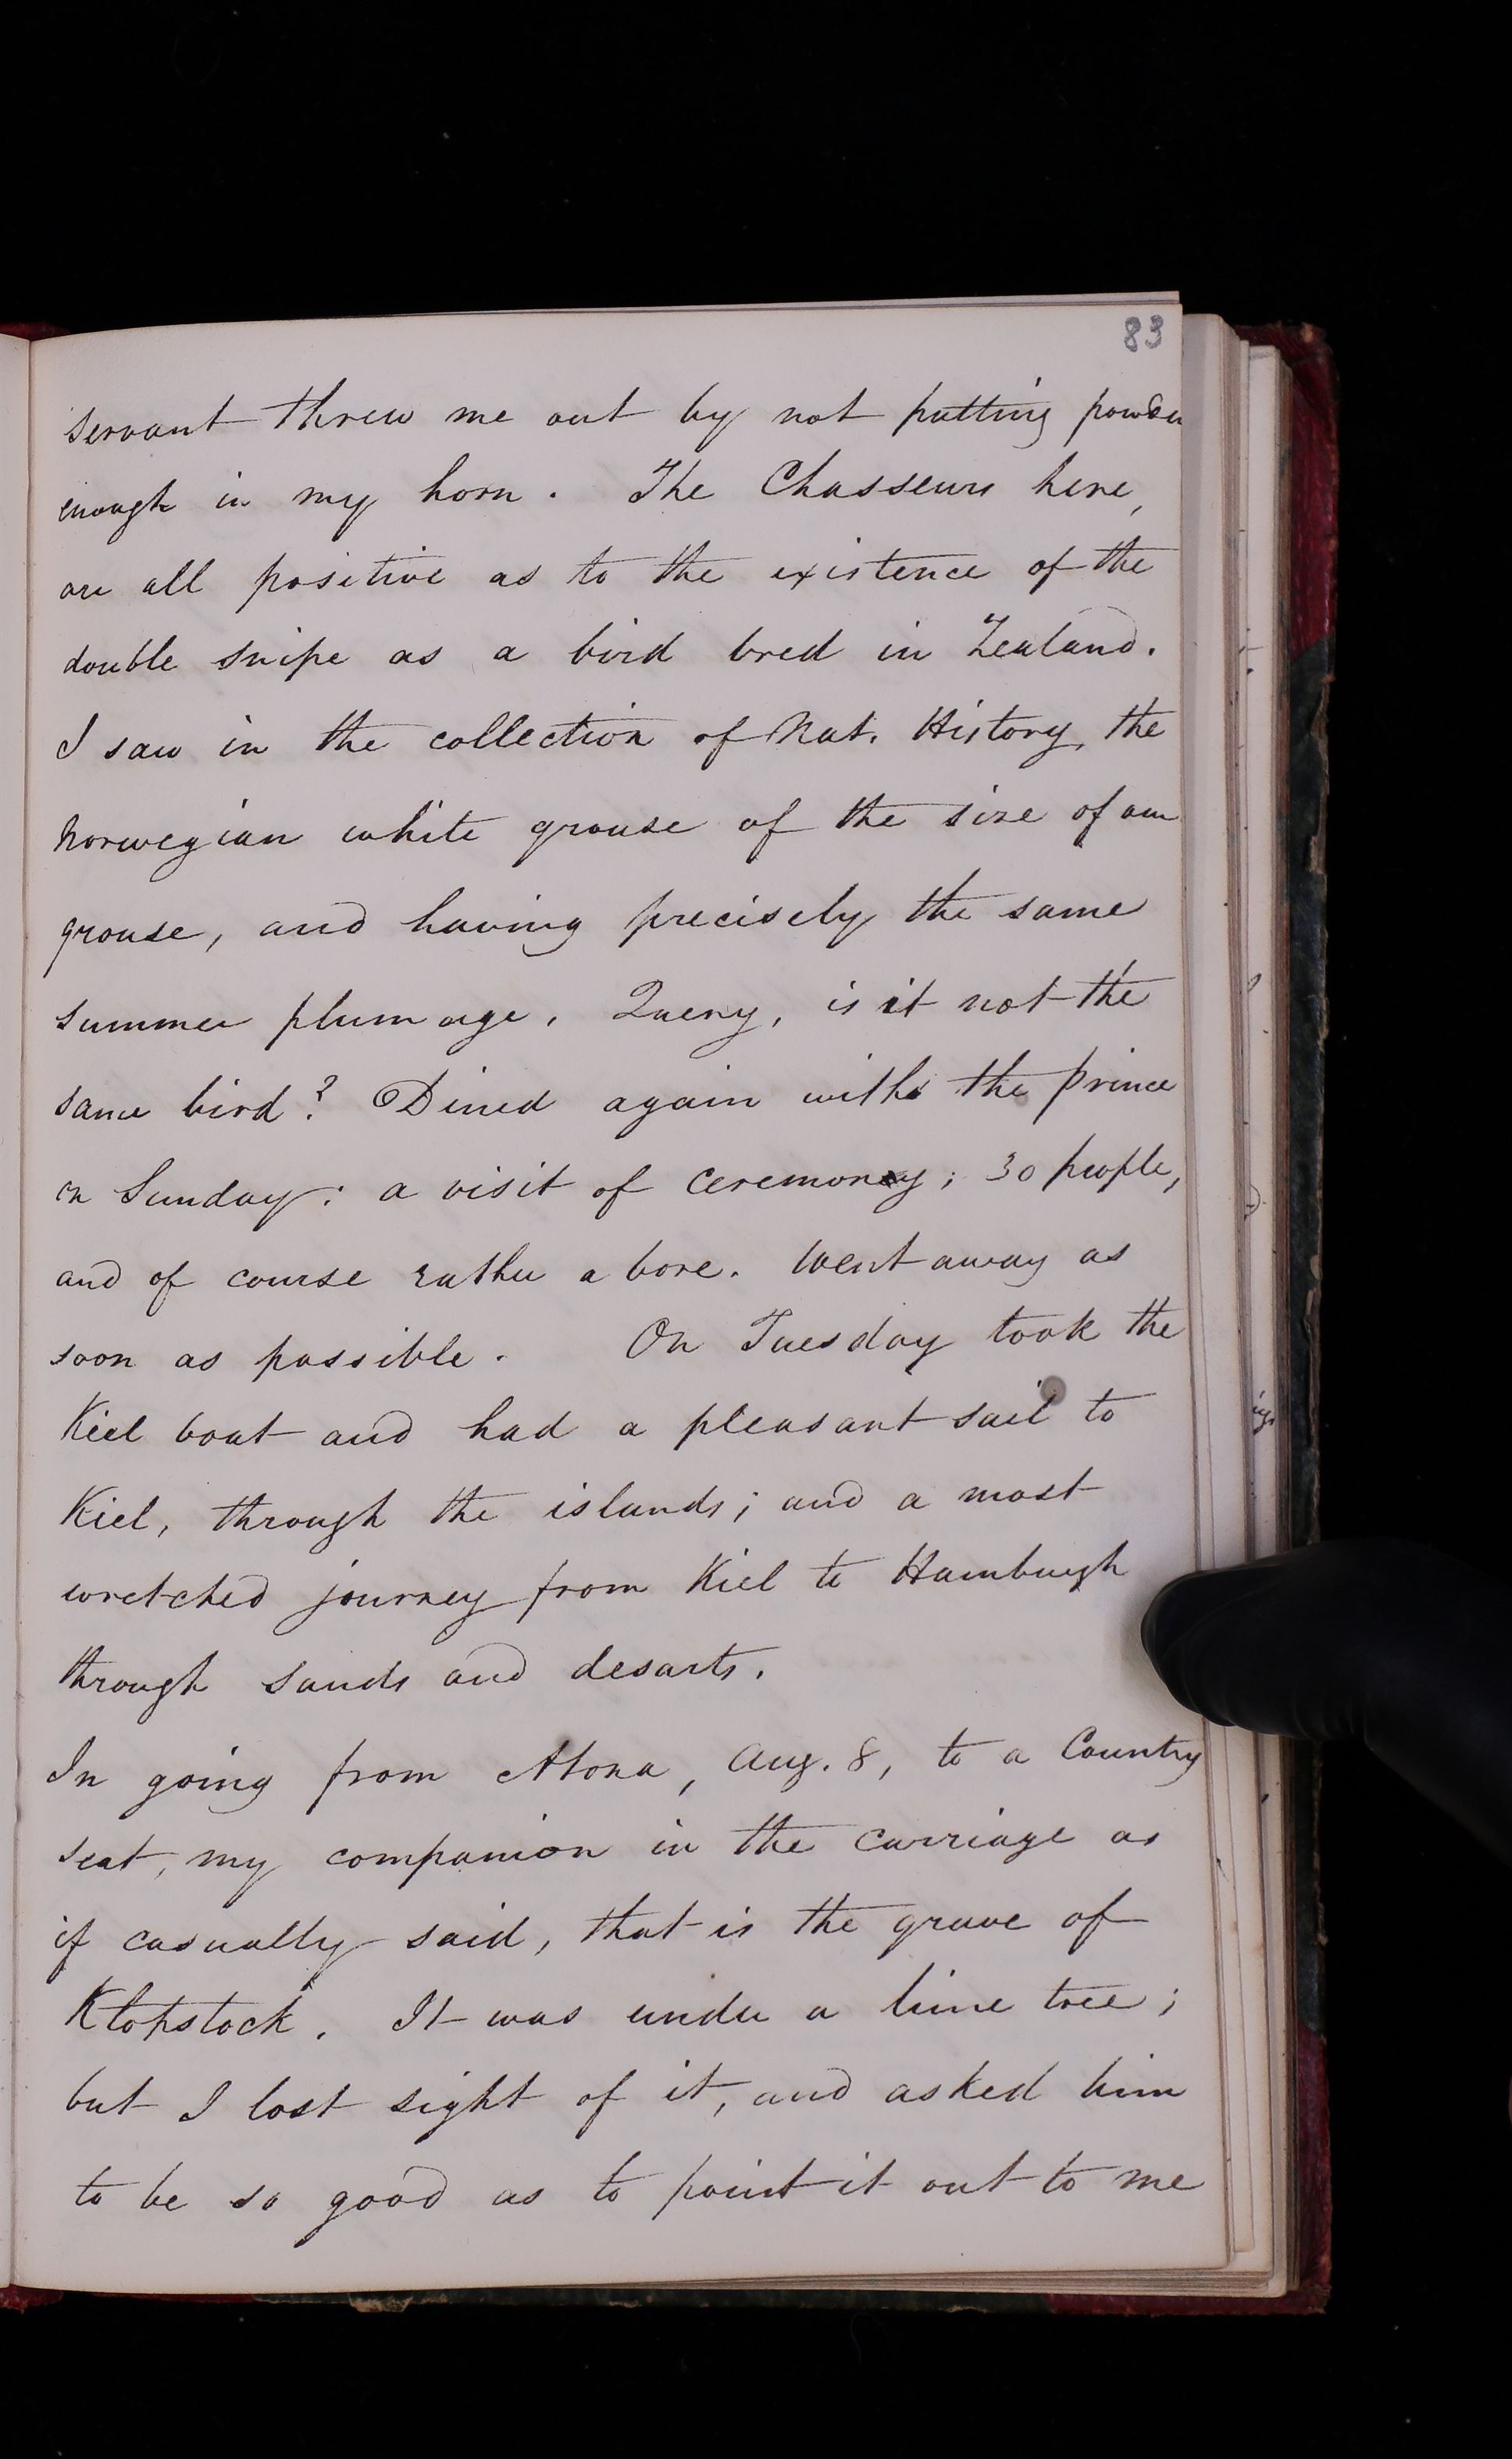 83
servant threw me out by not putting powder
enough in my horn. The Chasseurs here,
are all positive as to the existence of the
double snipe as a bird bred in Zealand.
I saw in the collection of Nat. History, the
Norwegian white grouse of the size of our
grouse, and having precisely the same
summer plumage. Query, is it not the
same bird? Dined again with the Prince
on Sunday: a visit of ceremony; 30 people,
and of course rather a bore. Went away as
soon as possible. On Tuesday took the
Kiel boat and had a pleasant sail to
Kiel, through the islands; and a most
wretched journey from Kiel to Hamburgh
through sands and desarts.
In going from Altona, Aug. 8, to a Country
seat, my companion in the carriage as
if casually said, that is the grave of
Klopstock. It was under a lime tree;
but I lost sight of it, and asked him
to be so good as to point it out to me